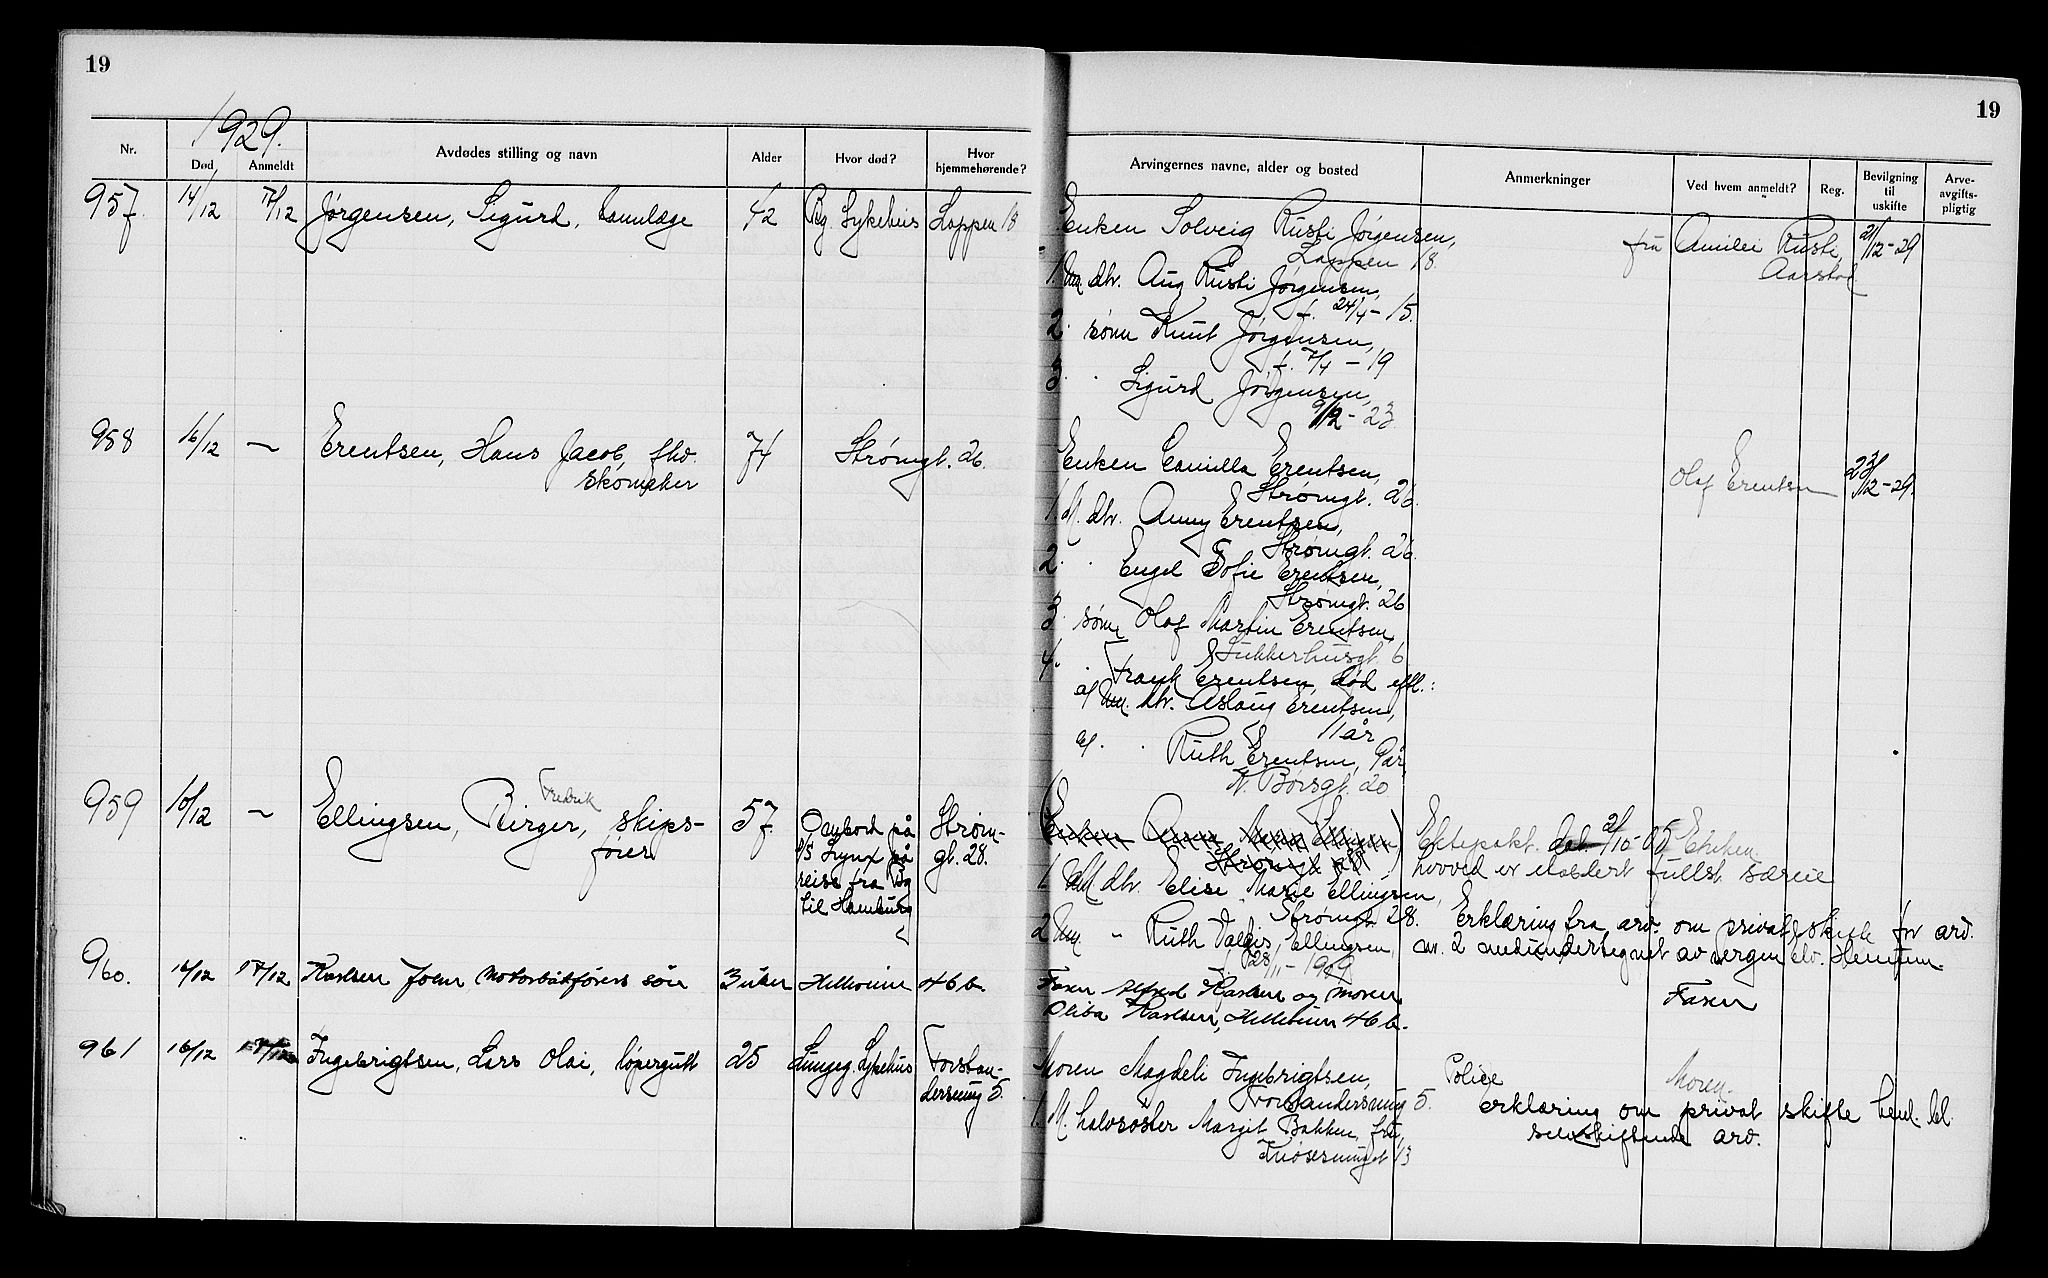 19
19
1929.
Nr.
Død
Anmeldt
Avdødes stilling og navn
Alder
Hvor død?
Hvor hjemmehørende?
Arvingernes navne, alder og bosted
Anmerkninger
Ved hvem anmeldt?
Reg.
Bevilgning til uskifte
Arve-avgifts-pligtig
957. 14/12 17/12 Jørgensen, Sigurd, tannlæge 42 Bg. Sykehus Lappen 18
Enken Solveig Rusti Jørgensen, fru Amilei Rusti, 21/12-29
Lappen 18. Aarstad
1. Um. dtr. Aug Rusti Jørgensen,
f. 24/4-15.
2. sønn Knut Jørgensen,
f. 7/4-19
3. " Sigurd Jørgensen,
9/12-23
958 16/12 — Erentsen, Hans Jacob, fhv. 74 Strømgt. 26.
skomaker
Enken Camilla Erentsen, Olaf Erentsen 23/12-29.
Strømgt. 26.
1. M. dtr. Anny Erentsen,
Strømgt. 26.
2. " Engel Sofie Erentsen,
Strømgt. 26
3. sønn Olaf Martin Erentsen,
Sukkerhusgt. 6
4. " Frank Erentsen, død eftl.:
a/ Um. dtr. Aslaug Erentsen,
11 år
" Ruth Erentsen, 9 år,
N. Børsgt. 20
959 10/12 — Ellingsen, Birger, Fredrik skips-
fører
57 Ombord på
s/s Lynx på
reise fra Bg
til Hamburg
Strøm-
gt. 28.
Enken Ellingsen
Strømgt. 28
Ektepakt. dat. 2/10-05
hvoved er etablert fullst. særeie
1. M dtr. Elise Marie Ellingsen,
Strømgt. 28. Erklæring fra arv. om privat skifte for arv.
2 Um. " Ruth Ellingsen,
f. 28/11-1909
nr. 2 medundertegnet av vergen
960. 16/12 17/12 Karlsen John motorbåtførers søn 3 uker 46 b.
Faren Alfred Karlsen og moren Faren
Karlsen, 46 b.
961 16/12 17/12 Ingebrigtsen, Lars Olai, løpergutt 25 Lungeg. Sykehus Forstan-
dersmug 5.
Moren Magdeli Ingebrigtsen, Police Moren
Forstandersmug 5. Erklæring om privat skifte
1. M. halvsøster Margit Bakken, fru, selvskiftende arv.
13